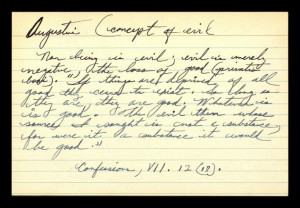 Augustin (concept of evil
Nor being is evil; evil is merely
negative, the loss of good (privatio
boni). "If things are deprived of all
good they cease to exist. So long as
they are, they are good. Whatever is
is good. The evil then whose
source I sought is not a substance,
for were it a substance it would
be good."
Confessions, VII. 12 (18).